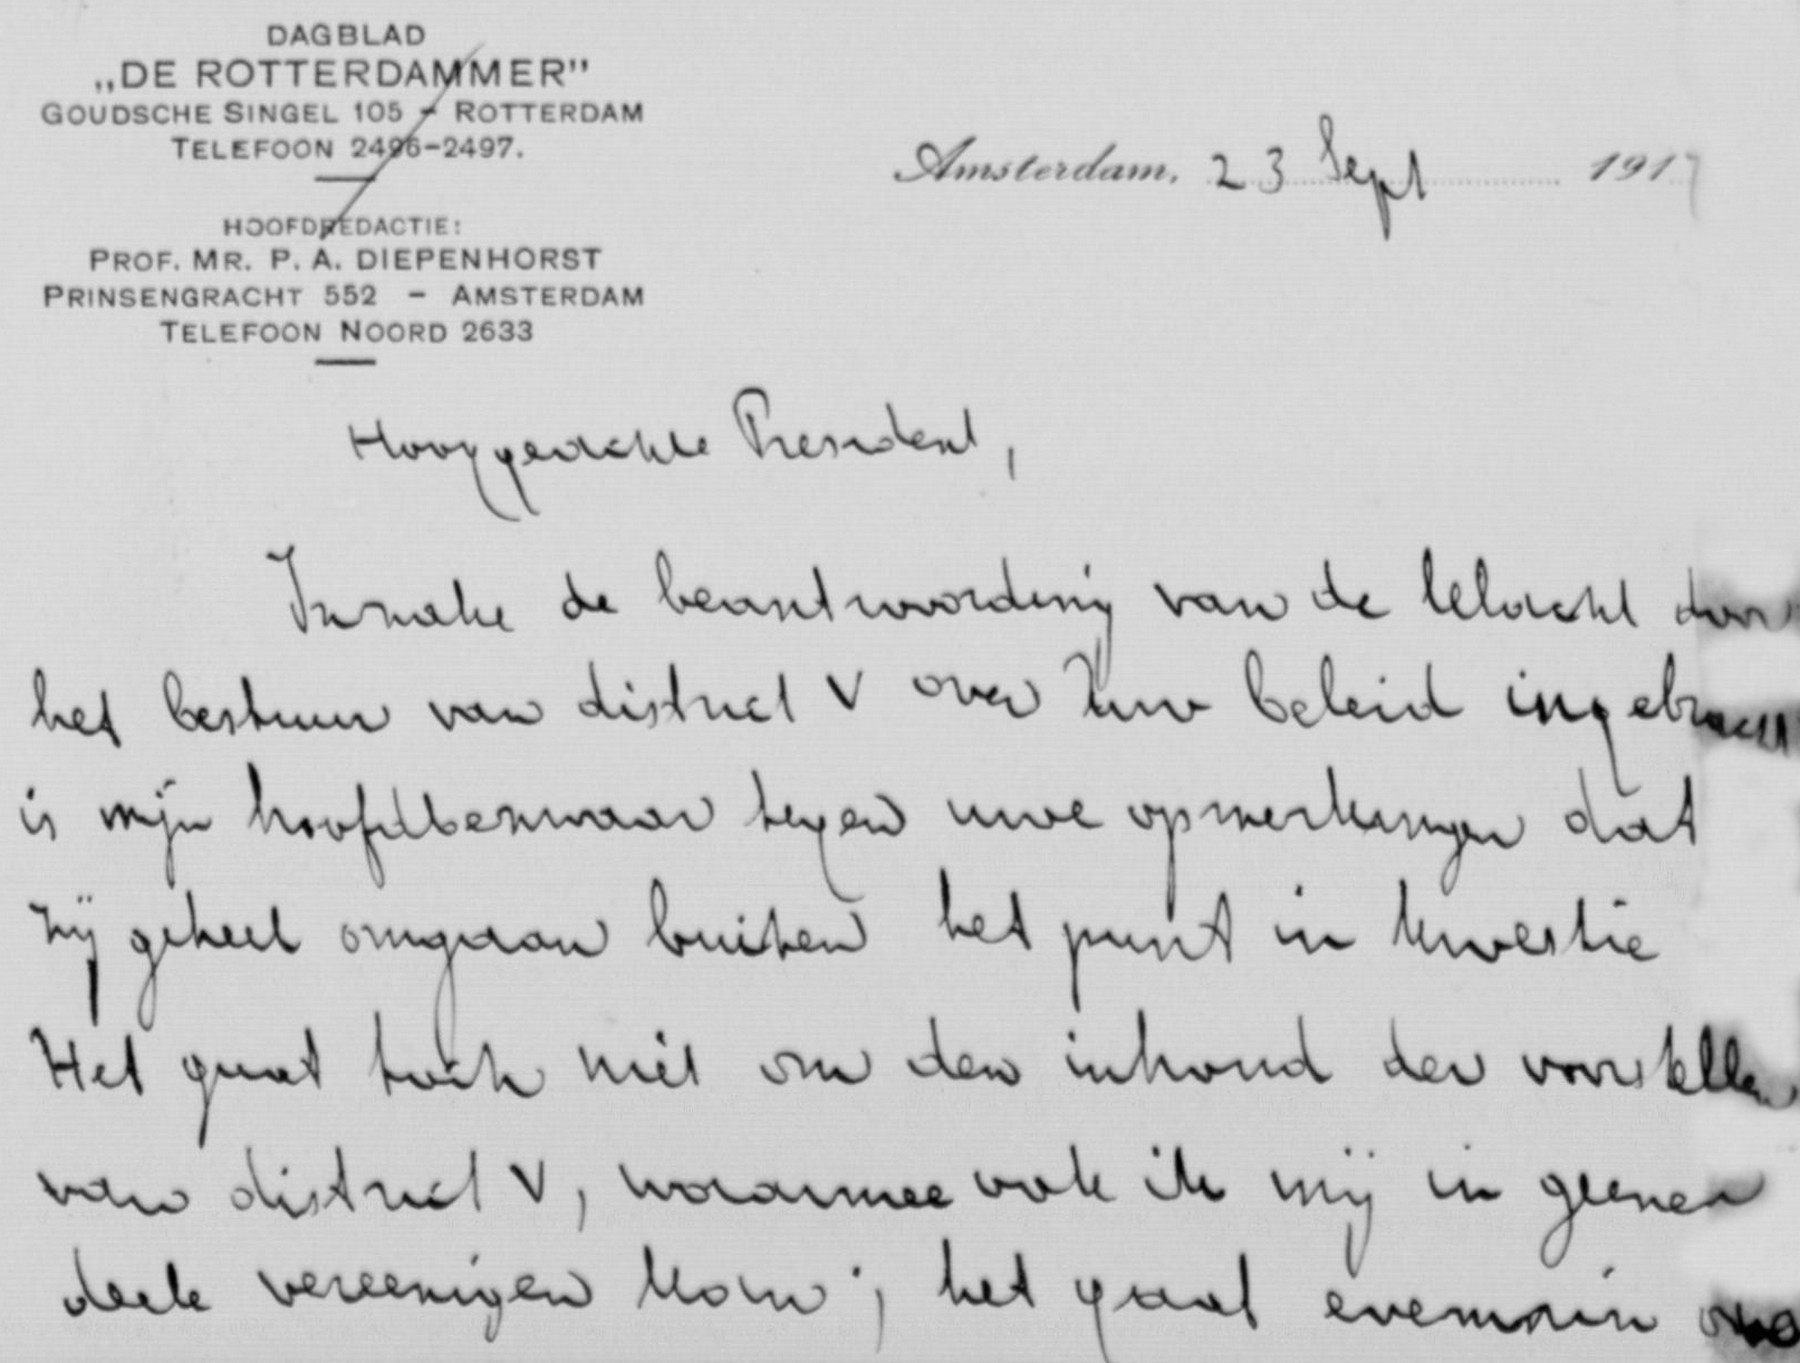 DAGBLAD
„DE ROTTERDAMMER"
GOUDSCHE SINGEL 105 - ROTTERDAM
TELEFOON 2496-2497.
HOOFDREDACTIE:
PROF. MR. P. A. DIEPENHORST
PRINSENGRACHT 552 - AMSTERDAM
TELEFOON NOORD 2633
Amsterdam, 23 Sept 1917
Hooggeachte President,
Inzake de beantwoording van de klacht door
het bestuur van district V over Uw beleid ingebracht
is mijn hoofdbezwaar tegen uwe opmerkingen dat
zij geheel omgaan buiten het punt in kwestie
Het gaat toch niet om den inhoud der voorstellen
van district V, waarmee ook ik mij in geenen
deele vereenigen kan; het gaat evenmin om